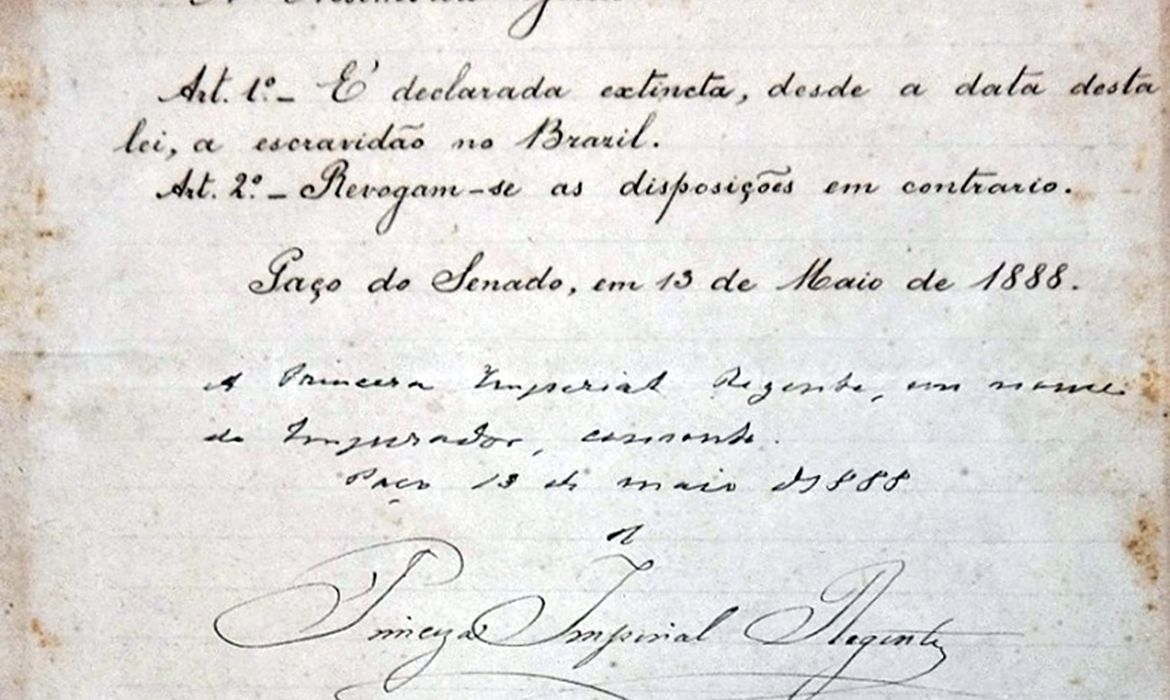 A Assembléa Geral
Art. 1º._ E' declarada extincta, desde a data desta
lei, a escravidão no Brazil.
Art. 2º._ Revogam-se as disposições em contrario.
Paço do Senado, em 13 de Maio de 1888.
A Princeza Imperial Regente, em nome
do Imperador, consente.
Paço 13 de maio de 1888
A
Princeza Imperial Regente